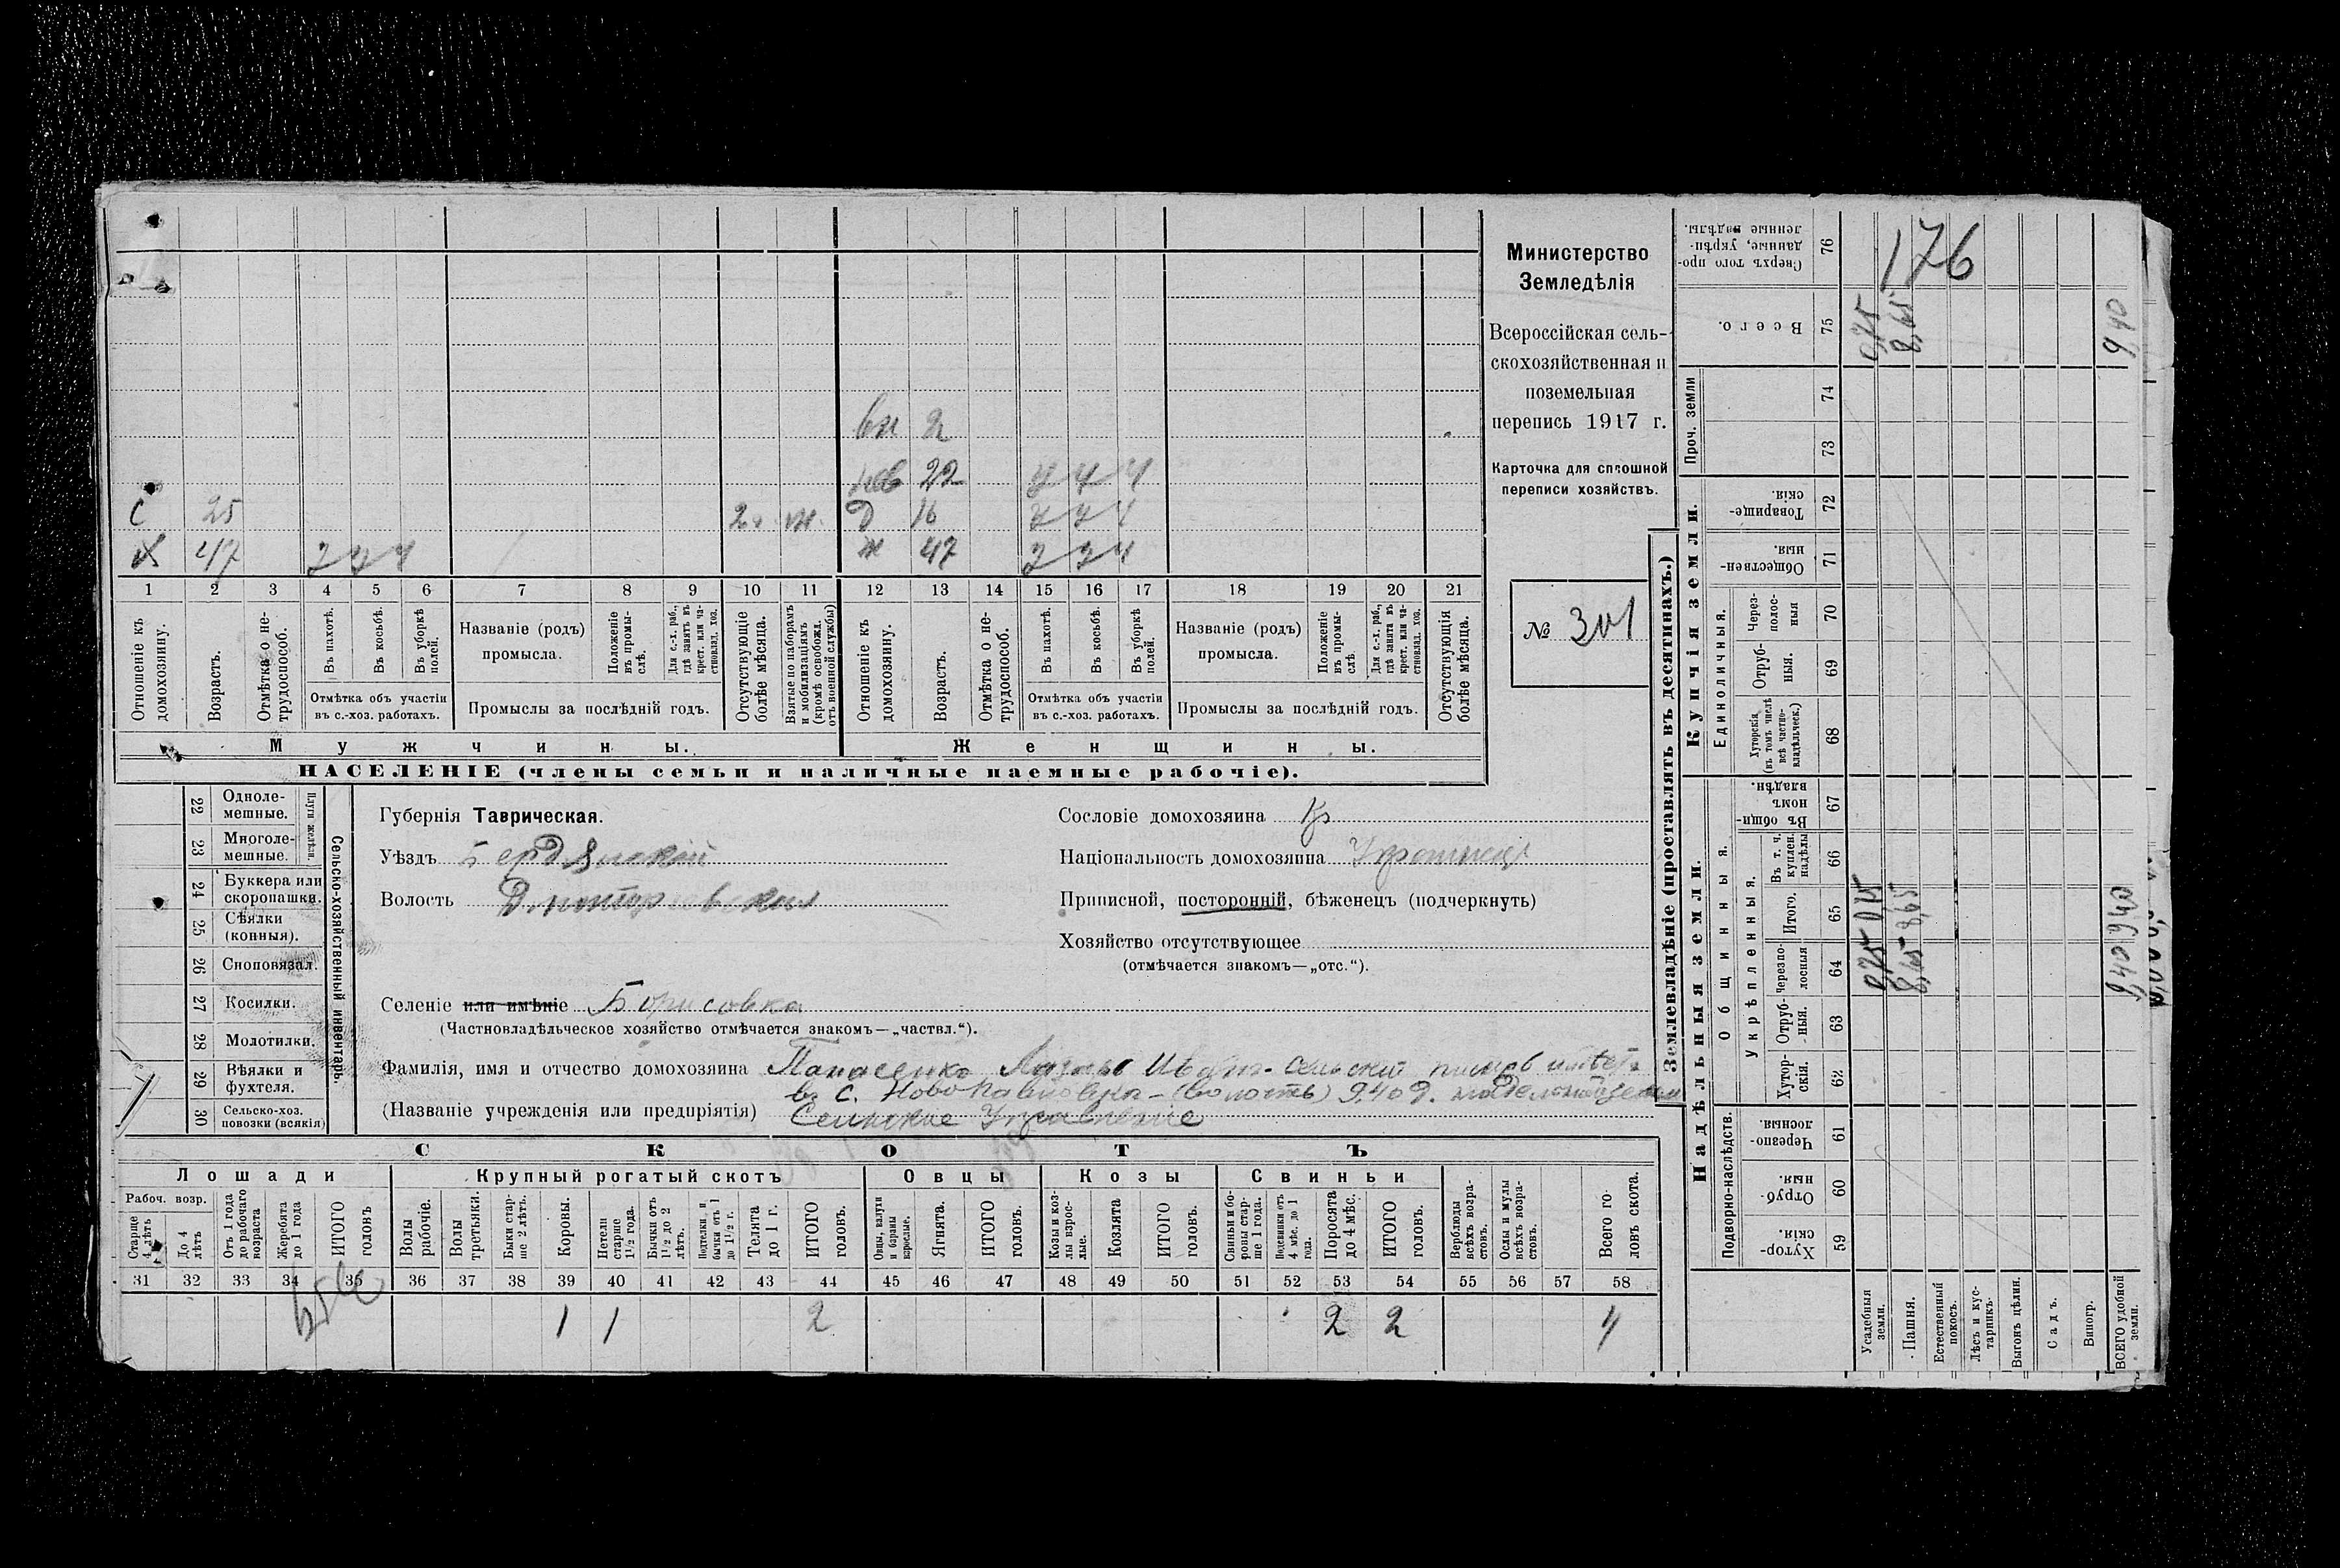 Министерство
Земледѣлія
Всероссійская сель-
скохозяйственная и
поземельная
перепись 1917 г.
Карточка для сплошной
переписи хозяйствъ.
№ 301
вн 2
нев 22
С 25 Д 16
Х 47 ж 47
1 2 3 4 5 6 7 8 9 10 11 12 13 14 15 16 17 18 19 20 21
Отношеніе къ домохозяину.
Возрастъ.
Отмѣтка о не-трудоспособ.
Въ пахотѣ.
Въ косьбѣ.
Въ уборкѣ полей.
Отмѣтка объ участіи
въ с.-хоз. работахъ.
Названіе (родъ)
промысла.
Положеніе въ промы-слѣ.
Для с.-х. раб., гдѣ занятъ въ крест. или ча-стновлад. хоз.
Промыслы за послѣдній годъ.
Отсутствующіе болѣе мѣсяца.
Взятые по наборамъ и мобилизаціямъ (кромѣ освобожд. отъ военной службы)
Отношеніе къ домохозяину.
Возрастъ.
Отмѣтка о не-трудоспособ.
Въ пахотѣ.
Въ косьбѣ.
Въ уборкѣ полей.
Отмѣтка объ участіи
въ с.-хоз. работахъ.
Названіе (родъ)
промысла.
Положеніе въ промы-слѣ
Для с.-х. раб., гдѣ занята въ крест. или ча-стновлад. хоз.
Промыслы за послѣдній годъ.
Отсутствующія болѣе мѣсяца.
Мужчины. Женщины.
НАСЕЛЕНІЕ (члены семьи и наличные наемные рабочіе).
Сельско-хозяйственный инвентарь.
Плуги желѣзн.
22 Одноле-мешные.
23 Многоле-мешные.
24 Буккера или скоропашки.
25 Сѣялки (конныя).
26 Сноповязал.
27 Косилки.
28 Молотилки.
29 Вѣялки и фухтеля.
30 Сельско-хоз. повозки (всякія)
Губернія Таврическая.
Уѣздъ Бердянскій
Волость Дмитровская
Селеніе или имѣніе Борисовка
(Частновладѣльческое хозяйство отмѣчается знакомъ—„частвл.“).
Сословіе домохозяина Кр
Національность домохозяина
Приписной, посторонній, бѣженецъ (подчеркнуть)
Хозяйство отсутствующее
(отмѣчается знакомъ—„отс.“).
Фамилія, имя и отчество домохозяина Панасенко Иван. сельскій имѣетъ
в с. Ново Павловка - (волость) 9,40 д. надельной земли
(Названіе учрежденія или предпріятія) Сельское Управленіе
СКОТЪ
Лошади Крупный рогатый скотъ Овцы Козы Свиньи
Рабоч. возр.
Старше 4 лѣтъ
До 4 лѣтъ
Отъ 1 года до рабочаго возраста
Жеребята до 1 года
ИТОГО головъ
Волы рабочіе.
Волы третьяки.
Быки стар-ше 2 лѣтъ.
Коровы.
Нетели старше 1½ года.
Бычки отъ 1½ до 2 лѣтъ.
Подтелки и бычки отъ 1 до 1½ г.
Телята до 1 г.
ИТОГО головъ.
Овцы, валухи и бараны взрослые.
Ягнята.
ИТОГО головъ.
Козы и коз-лы взрос-лые.
Козлята
ИТОГО головъ.
Свиньи и бо-ровы стар-ше 1 года.
Подсвинки отъ 4 мѣс. до 1 года.
Поросята до 4 мѣс.
ИТОГО головъ.
Верблюды всѣхъ возра-стовъ.
Ослы и мулы всѣхъ возра-стовъ.
Всего го-ловъ скота.
31 32 33 34 35 36 37 38 39 40 41 42 43 44 45 46 47 48 49 50 51 52 53 54 55 56 57 58
1 1 2 2 2 4
Землевладѣніе (проставлять въ десятинахъ.)
Надѣльныя земли.
Купчія земли.
Проч. земли
Подворно-наслѣдств.
Общинныя.
Укрѣпленныя.
Единоличныя.
59 Хутор-скія.
60 Отруб-ныя.
61 Черезпо-лосныя.
62 Хутор-скія.
63 Отруб-ныя.
64 Черезпо-лосныя
65 Итого.
66 Въ т. ч. куплен. надѣлы
67 Въ общин-номъ владѣн.
68 Хуторскія (въ томъ числѣ всѣ частно-владѣльческ.)
69 Отруб-ныя.
70 Через-полос-ныя
71 Обществен-ныя.
72 Товарище-скія.
73
74
75 Всего.
76 Сверхъ того про-данные, укрѣп-ленные надѣлы.
176
Усадебныя земли. 0,75 0,75 0,75
Пашня. 8,65 8,65 8,65
Естественный покосъ.
Лѣсъ и кус-тарникъ.
Выгонъ цѣлин.
Садъ.
Виногр.
ВСЕГО удобной земли. 9,40 9,40 9,40